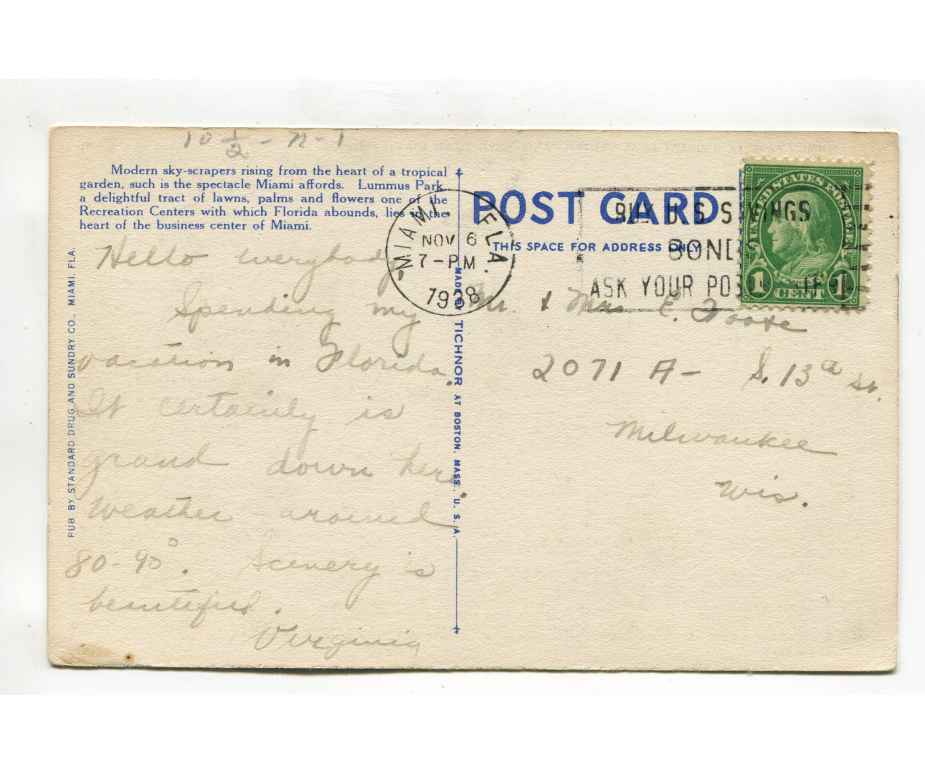 10 1/2 - n - 1
Modern sky-scrapers rising from the heart of a tropical
garden, such is the spectacle Miami affords. Lummus Park,
a delightful tract of lawns, palms and flowers one of the
Recreation Centers with which Florida abounds, lies in the
heart of the business center of Miami.
Hello everybody
Spending my
vacation in Florida.
It certainly is
grand down here.
Weather around
80-90°. Scenery is
beautiful.
Virginia
PUB. BY STANDARD DRUG AND SUNDRY CO., MIAMI, FLA.
MADE BY TICHNOR AT BOSTON, MASS. U. S. A.
POST CARD
THIS SPACE FOR ADDRESS ONLY
MIAMI, FLA.
NOV 6
7-PM
1938
BUY U.S. SAVINGS
BONDS
ASK YOUR
UNITED STATES POSTAGE
1 CENT 1
Mr. & Mrs E.
2071 A- S. 13th St.
Milwaukee
Wis.